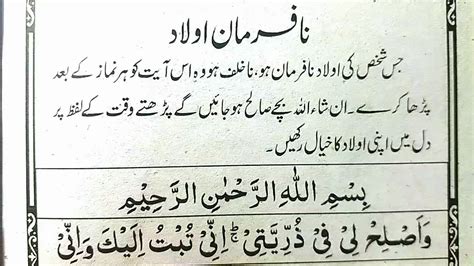 نافرمان اولاد
جس شخص کی اولاد نافرمان ہو، ناخلف ہو وہ اس آیت کو ہر نماز کے بعد
پڑھا کرے۔ ان شاء اللہ بچے صالح ہو جائیں گے پڑھتے وقت کے لفظ پر
دل میں اپنی اولاد کا خیال رکھیں۔
بِسْمِ اللهِ الرَّحْمٰنِ الرَّحِيْمِ
وَاَصْلِحْ لِيْ فِيْ ذُرِّيَّتِيْ ۚ اِنِّيْ تُبْتُ اِلَيْكَ وَاِنِّيْ